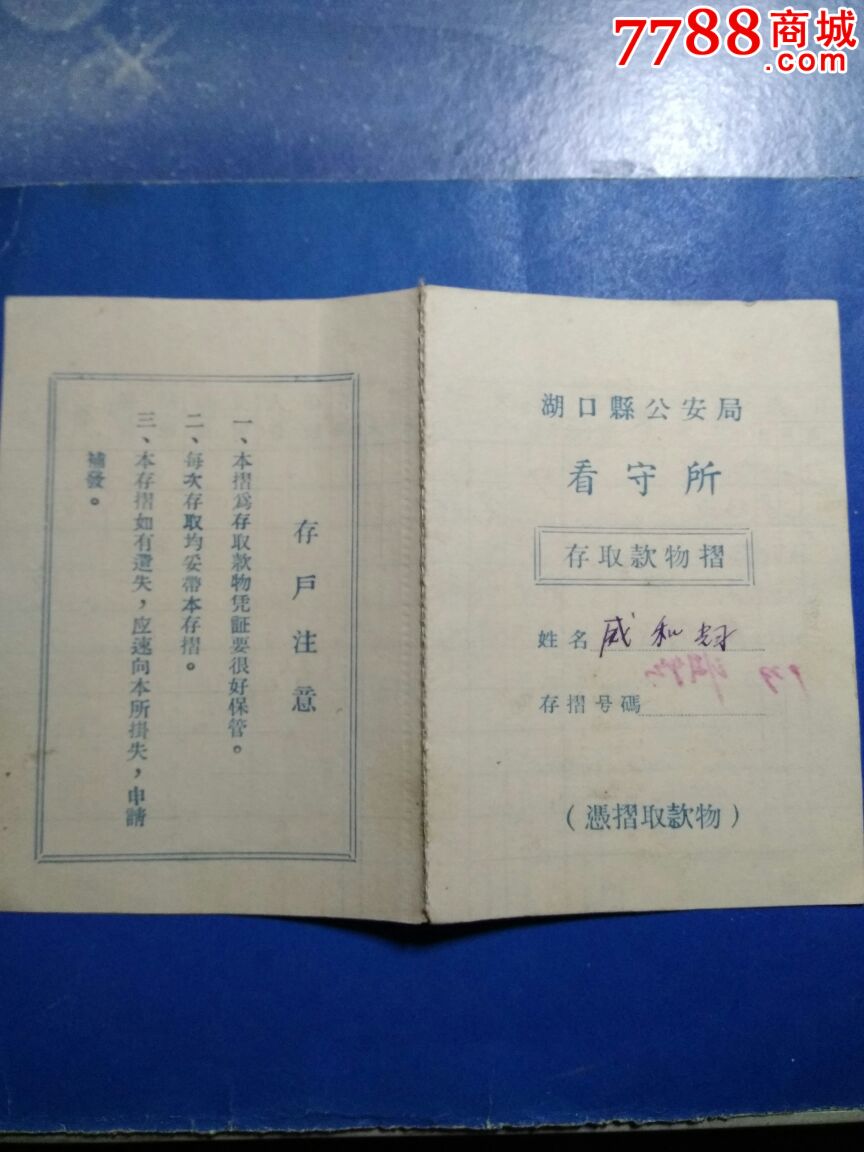 7788商城
.com
湖口縣公安局
看守所
存取款物摺
姓名 成和
存摺号碼
（憑摺取款物）
存戶注意
一、本摺爲存取款物凭証要很好保管。
二、每次存取均妥帶本存摺。
三、本存摺如有遺失，应速向本所掛失，申請
補發。